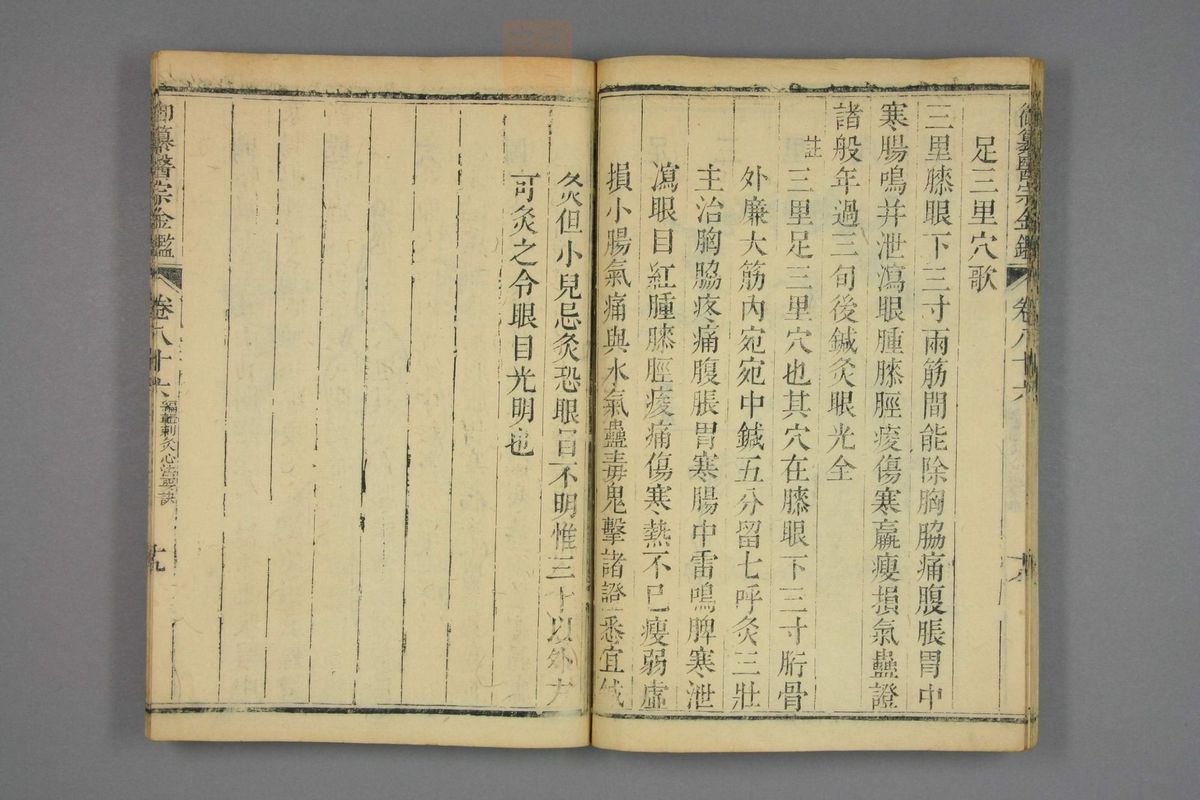 御纂醫宗金鑑 卷八十六
足三里穴歌
三里膝眼下三寸兩筋間能除胸脇痛腹脹胃中
寒腸鳴并泄瀉眼腫膝脛痠傷寒羸瘦損氣蠱證
諸般年過三旬後鍼灸眼光全
註三里足三里穴也其穴在膝眼下三寸胻骨
外廉大筋內宛宛中鍼五分留七呼灸三壯
主治胸脇疼痛腹脹胃寒腸中雷鳴脾寒泄
瀉眼目紅腫膝脛痠痛傷寒熱不已瘦弱虛
損小腸氣痛與水氣蠱毒鬼擊諸證悉宜鍼
灸但小兒忌灸恐眼目不明惟三十以外方
可灸之令眼目光明也
御纂醫宗金鑑 卷八十六 編輯刺灸心法要訣 十九